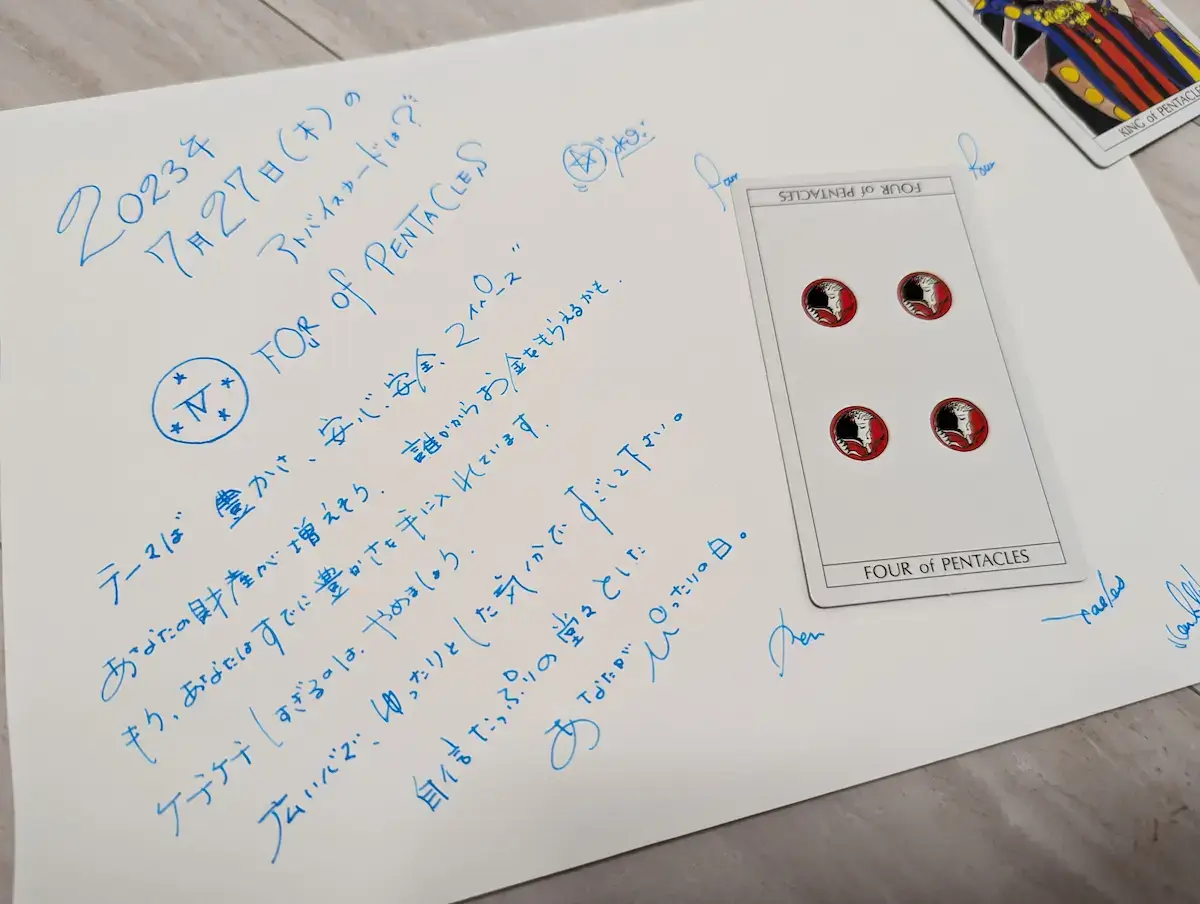 2023年
7月27日(木)の
アドバイスカードは?
FOUR of PENTACLES
IV
テーマは 豊かさ、安心、安全、
あなたの財産が増えそう. 誰かからお金をもらえるかも.
もう、あなたはすでに豊かさを手に入れています.
ケチケチしすぎるのは、やめましょう.
広い心で、ゆったりとした気分ですごして下さい。
自信たっぷりの堂々とした
あなたがぴったりの日。
FOUR of PENTACLES
FOUR of PENTACLES
KING of PENTACLES